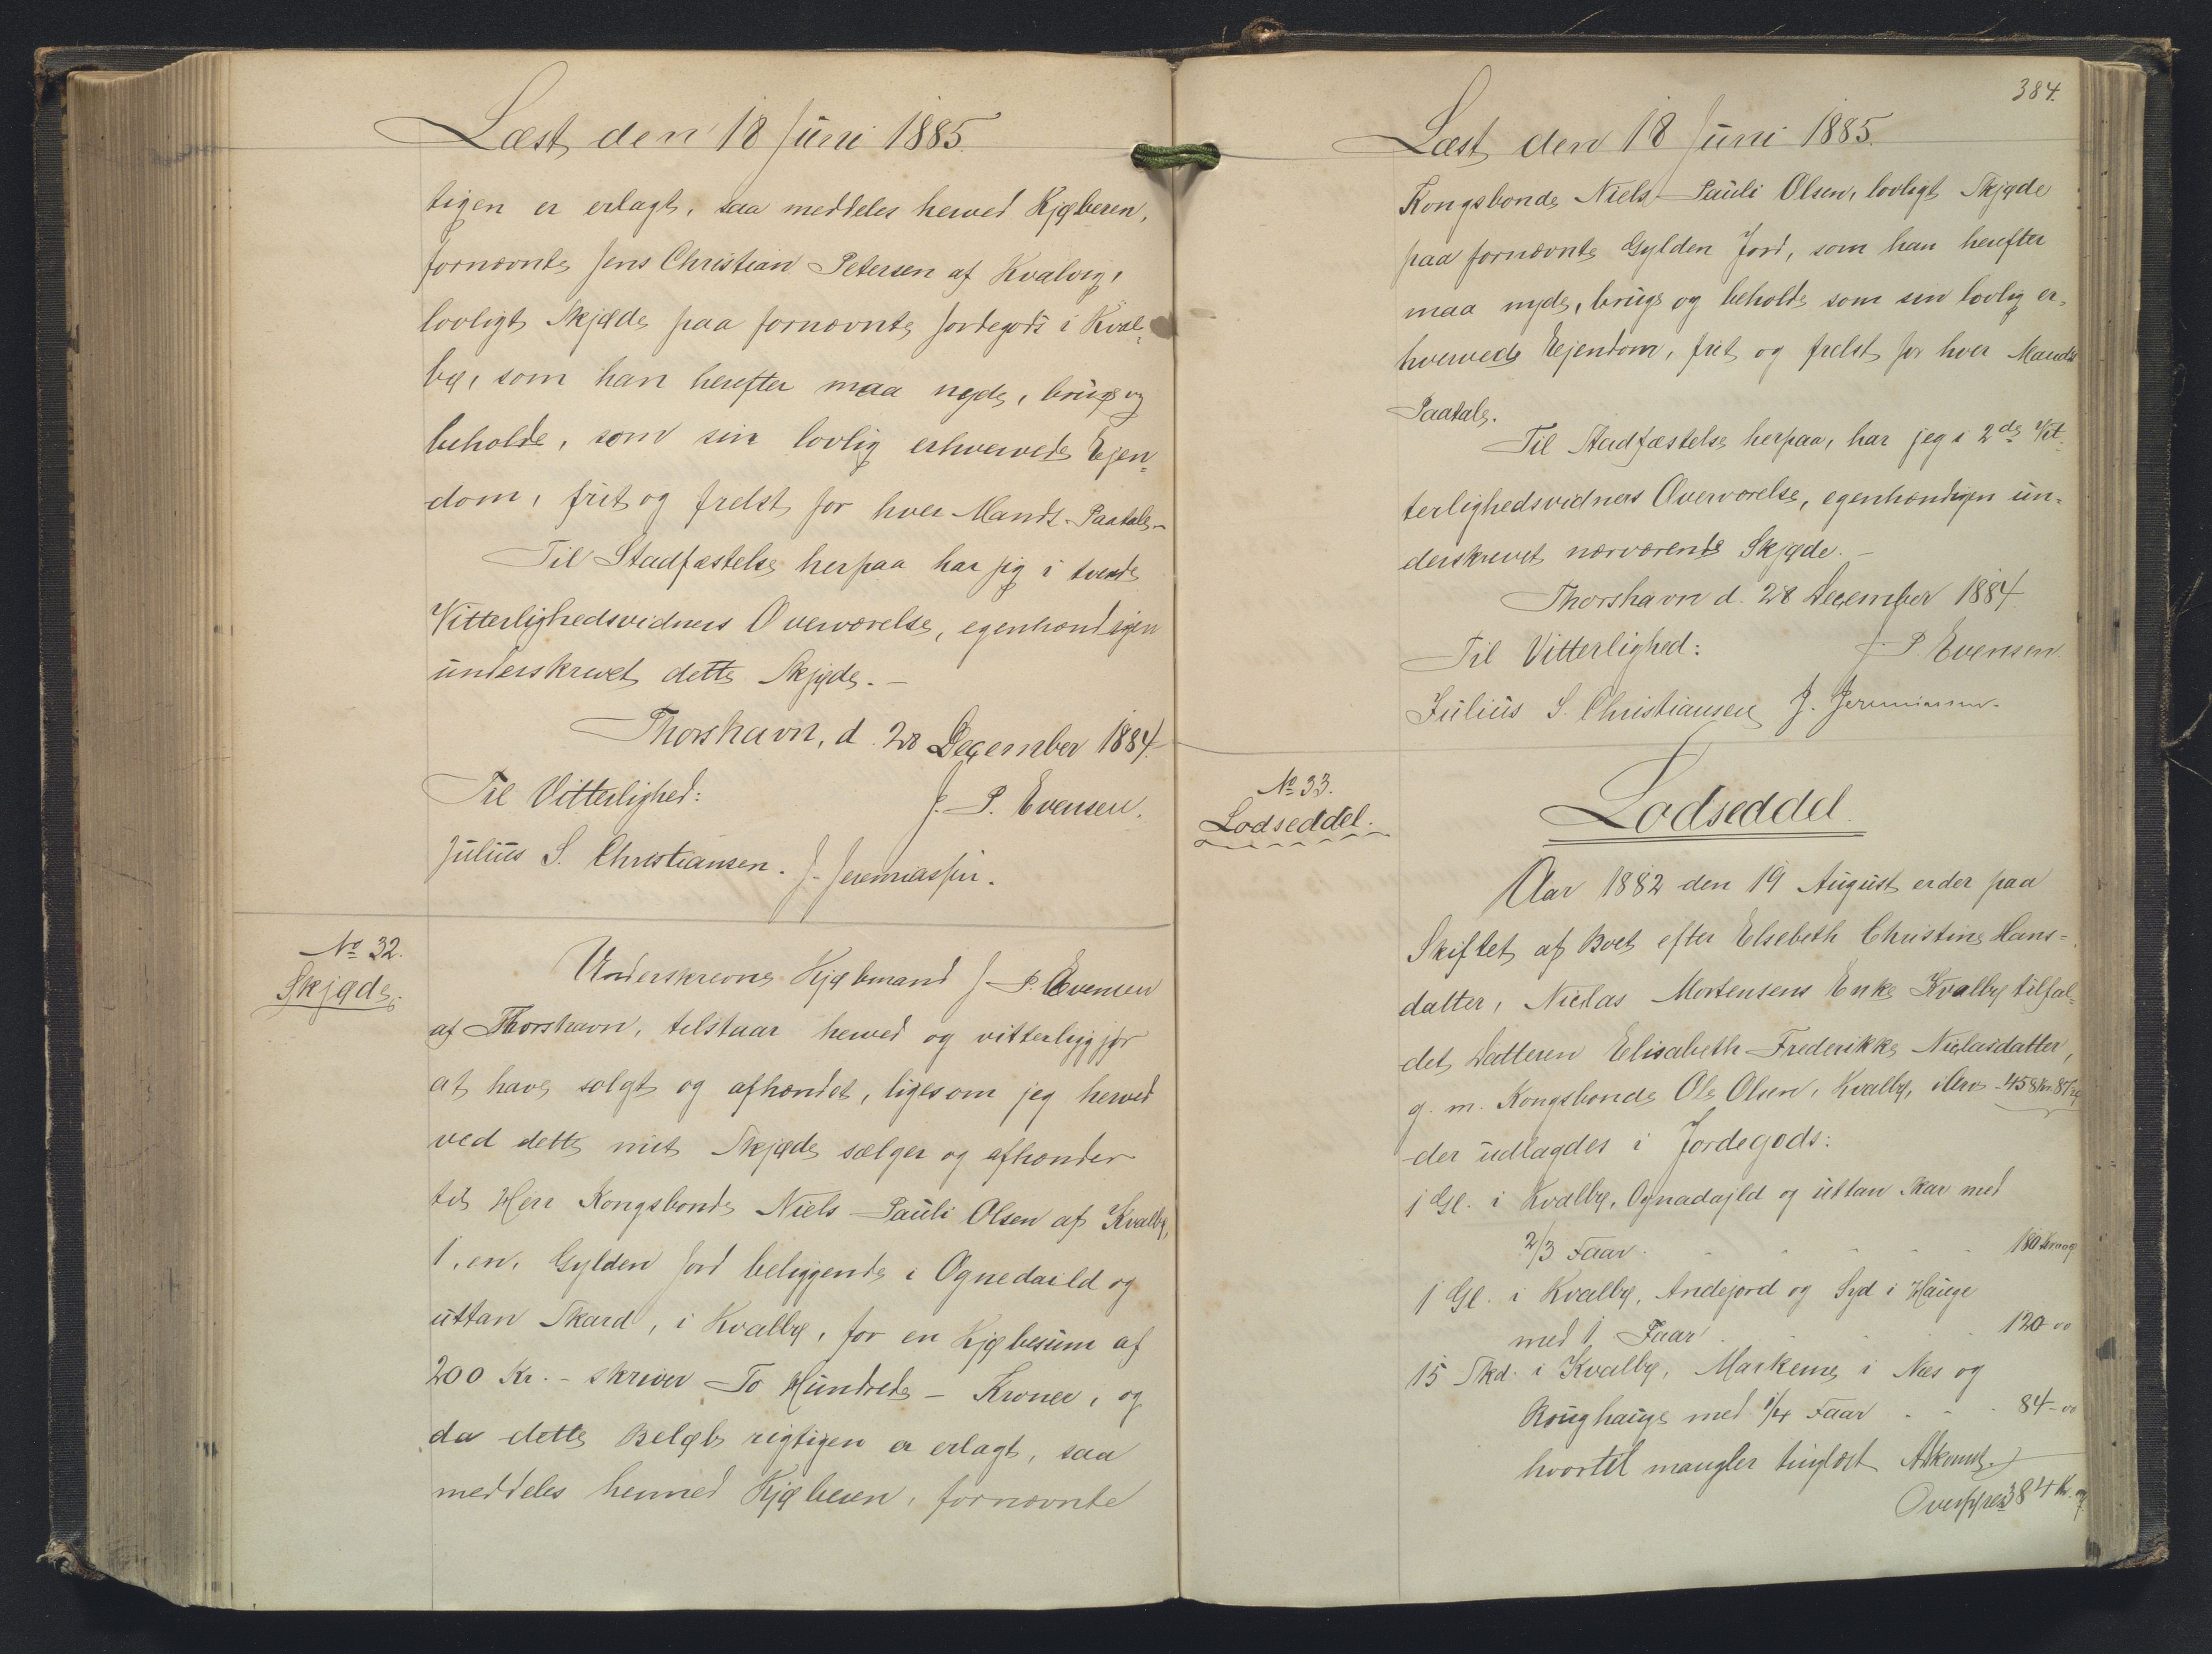 Læst den 18 Juni 1885.
tigen er erlagt, saa meddeles herved Kjøberen,
fornævnte Jens Christian Petersen af Kvalvig,
lovligt Skjøde paa fornævnte Jordegods i Kval-
bø, som han herefter maa nyde, bruge og
beholde, som sin lovlig erhvervede Ejen-
dom, frit og frelst for hver Mands Paatale.-
Til Stadfæstelse herpaa har jeg i tvende
Vitterlighedsvidners Overværelse, egenhændigen
underskrevet dette Skjøde. -
Thorshavn, d. 28 December 1884.
Til Vitterlighed:
J. P. Evensen.
Julius S. Christiansen. J. Jeremiassen.
No 32.
Skjøde.
Underskrevne Kjøbmand J. P. Evensen
af Thorshavn, tilstaar herved og vitterliggjør
at have solgt og afhændet, ligesom jeg herved
ved dette mit Skjøde sælger og afhænder
til Herr Kongsbonde Niels Pauli Olsen af Kvalbø,
1, en, Gylden Jord beliggende i Ognedaild og
uttan Skard, i Kvalbø, for en Kjøbesum af
200 Kr. - skriver To Hundrede - Kroner, og
da dette Beløb rigtigen er erlagt, saa
meddeles herved Kjøberen, fornævnte
384.
Læst den 18 Juni 1885.
Kongsbonde Niels Pauli Olsen, lovligt Skjøde
paa fornævnte Gylden Jord, som han herefter
maa nyde, bruge og beholde som sin lovlig er-
hvervede Eejendom, frit og frelst for hver Mands
Paatale.
Til Stadfæstelse herpaa, har jeg i 2de Vit-
terlighedsvidners Overværelse, egenhændigen un-
derskrevet nærværende Skjøde. -
Thorshavn d. 28 December 1884
Til Vitterlighed:
J. P. Evensen.
Julius S. Christiansen J. Jeremiassen.
No 33.
Lodseddel.
Lodseddel.
Aar 1882 den 19 August er der paa
Skiftet af Boet efter Elsebeth Christine Hans-
datter, Niclas Mortensens Enke Kvalbø tilfal-
det Datteren Elisabeth Frederikke Niclasdatter,
g. m. Kongsbonde Ole Olsen, Kvalbø, iArv 458 Kr 87
der udlagdes i Jordegods:
1 Gl. i Kvalbø, Ognadajld og uttan Skar med
2/3 Faar . . . . . 180 Kr 00
1 Gl. i Kvalbø, Andejord og Syd i Hauge
med 1 Faar . . . . 120-00
15 Skd. i Kvalbø, Markerne i Næs og
Roughauge med 1/4 Faar . . . 84-00
hvortil mangler tinglæst Adkomst.
Overføres 384 Kr.